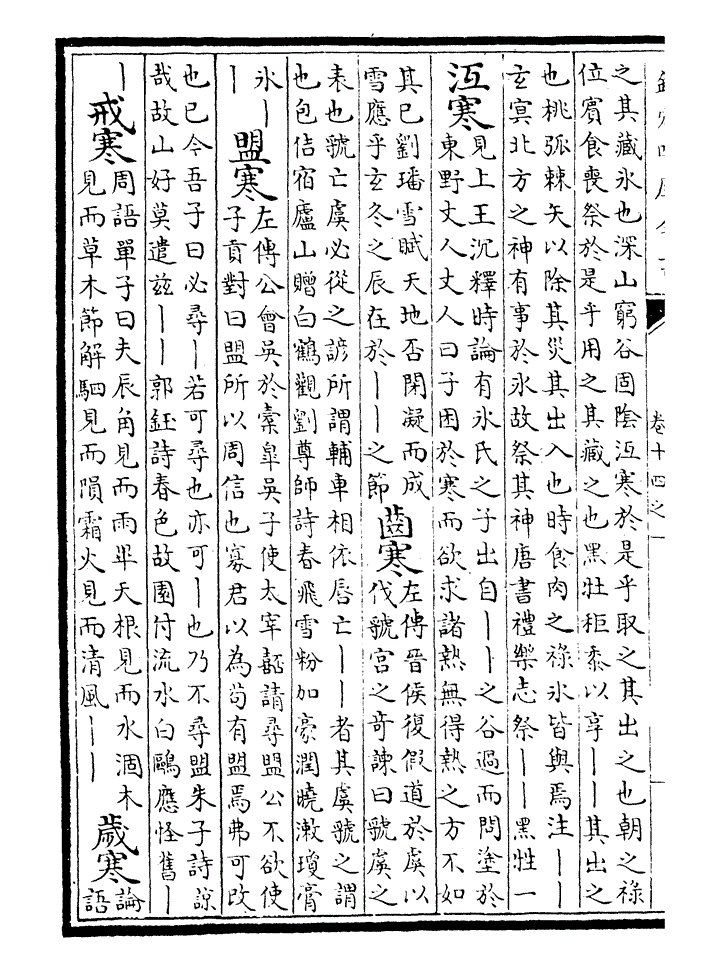 卷十四之一
之其藏氷也深山窮谷固隂沍寒於是乎取之其出之也朝之祿
位賓食喪祭於是乎用之其藏之也黑牡秬黍以享丨丨其出之
也桃弧棘矢以除其災其出入也時食肉之祿氷皆與焉注丨丨
玄冥北方之神有事於氷故祭其神唐書禮樂志祭丨丨黑牲一
沍寒
見上王沉釋時論有氷氏之子出自丨丨之谷過而問塗於
東野丈人丈人曰子困於寒而欲求諸熱無得熱之方不如
其已劉璠雪賦天地否閉凝而成
雪應乎玄冬之辰在於丨丨之節
齒寒
左傳晉侯復假道於虞以
伐虢宮之奇諫曰虢虞之
表也虢亡虞必從之諺所謂輔車相依唇亡丨丨者其虞虢之謂
也包佶宿廬山贈白鶴觀劉尊師詩春飛雪粉加豪潤曉漱瓊膏
氷丨
丨
盟寒
左傳公會吳於槖臯吳子使太宰嚭請尋盟公不欲使
子貢對曰盟所以周信也寡君以為苟有盟焉弗可改
也已今吾子曰必尋丨若可尋也亦可丨也乃不尋盟朱子詩諒
哉故山好莫遣兹丨丨郭鈺詩春色故園付流水白鷗應怪舊丨
丨
戒寒
周語單子曰夫辰角見而雨畢天根見而水涸本
見而草木節解駟見而隕霜火見而清風丨丨
歲寒
論
語